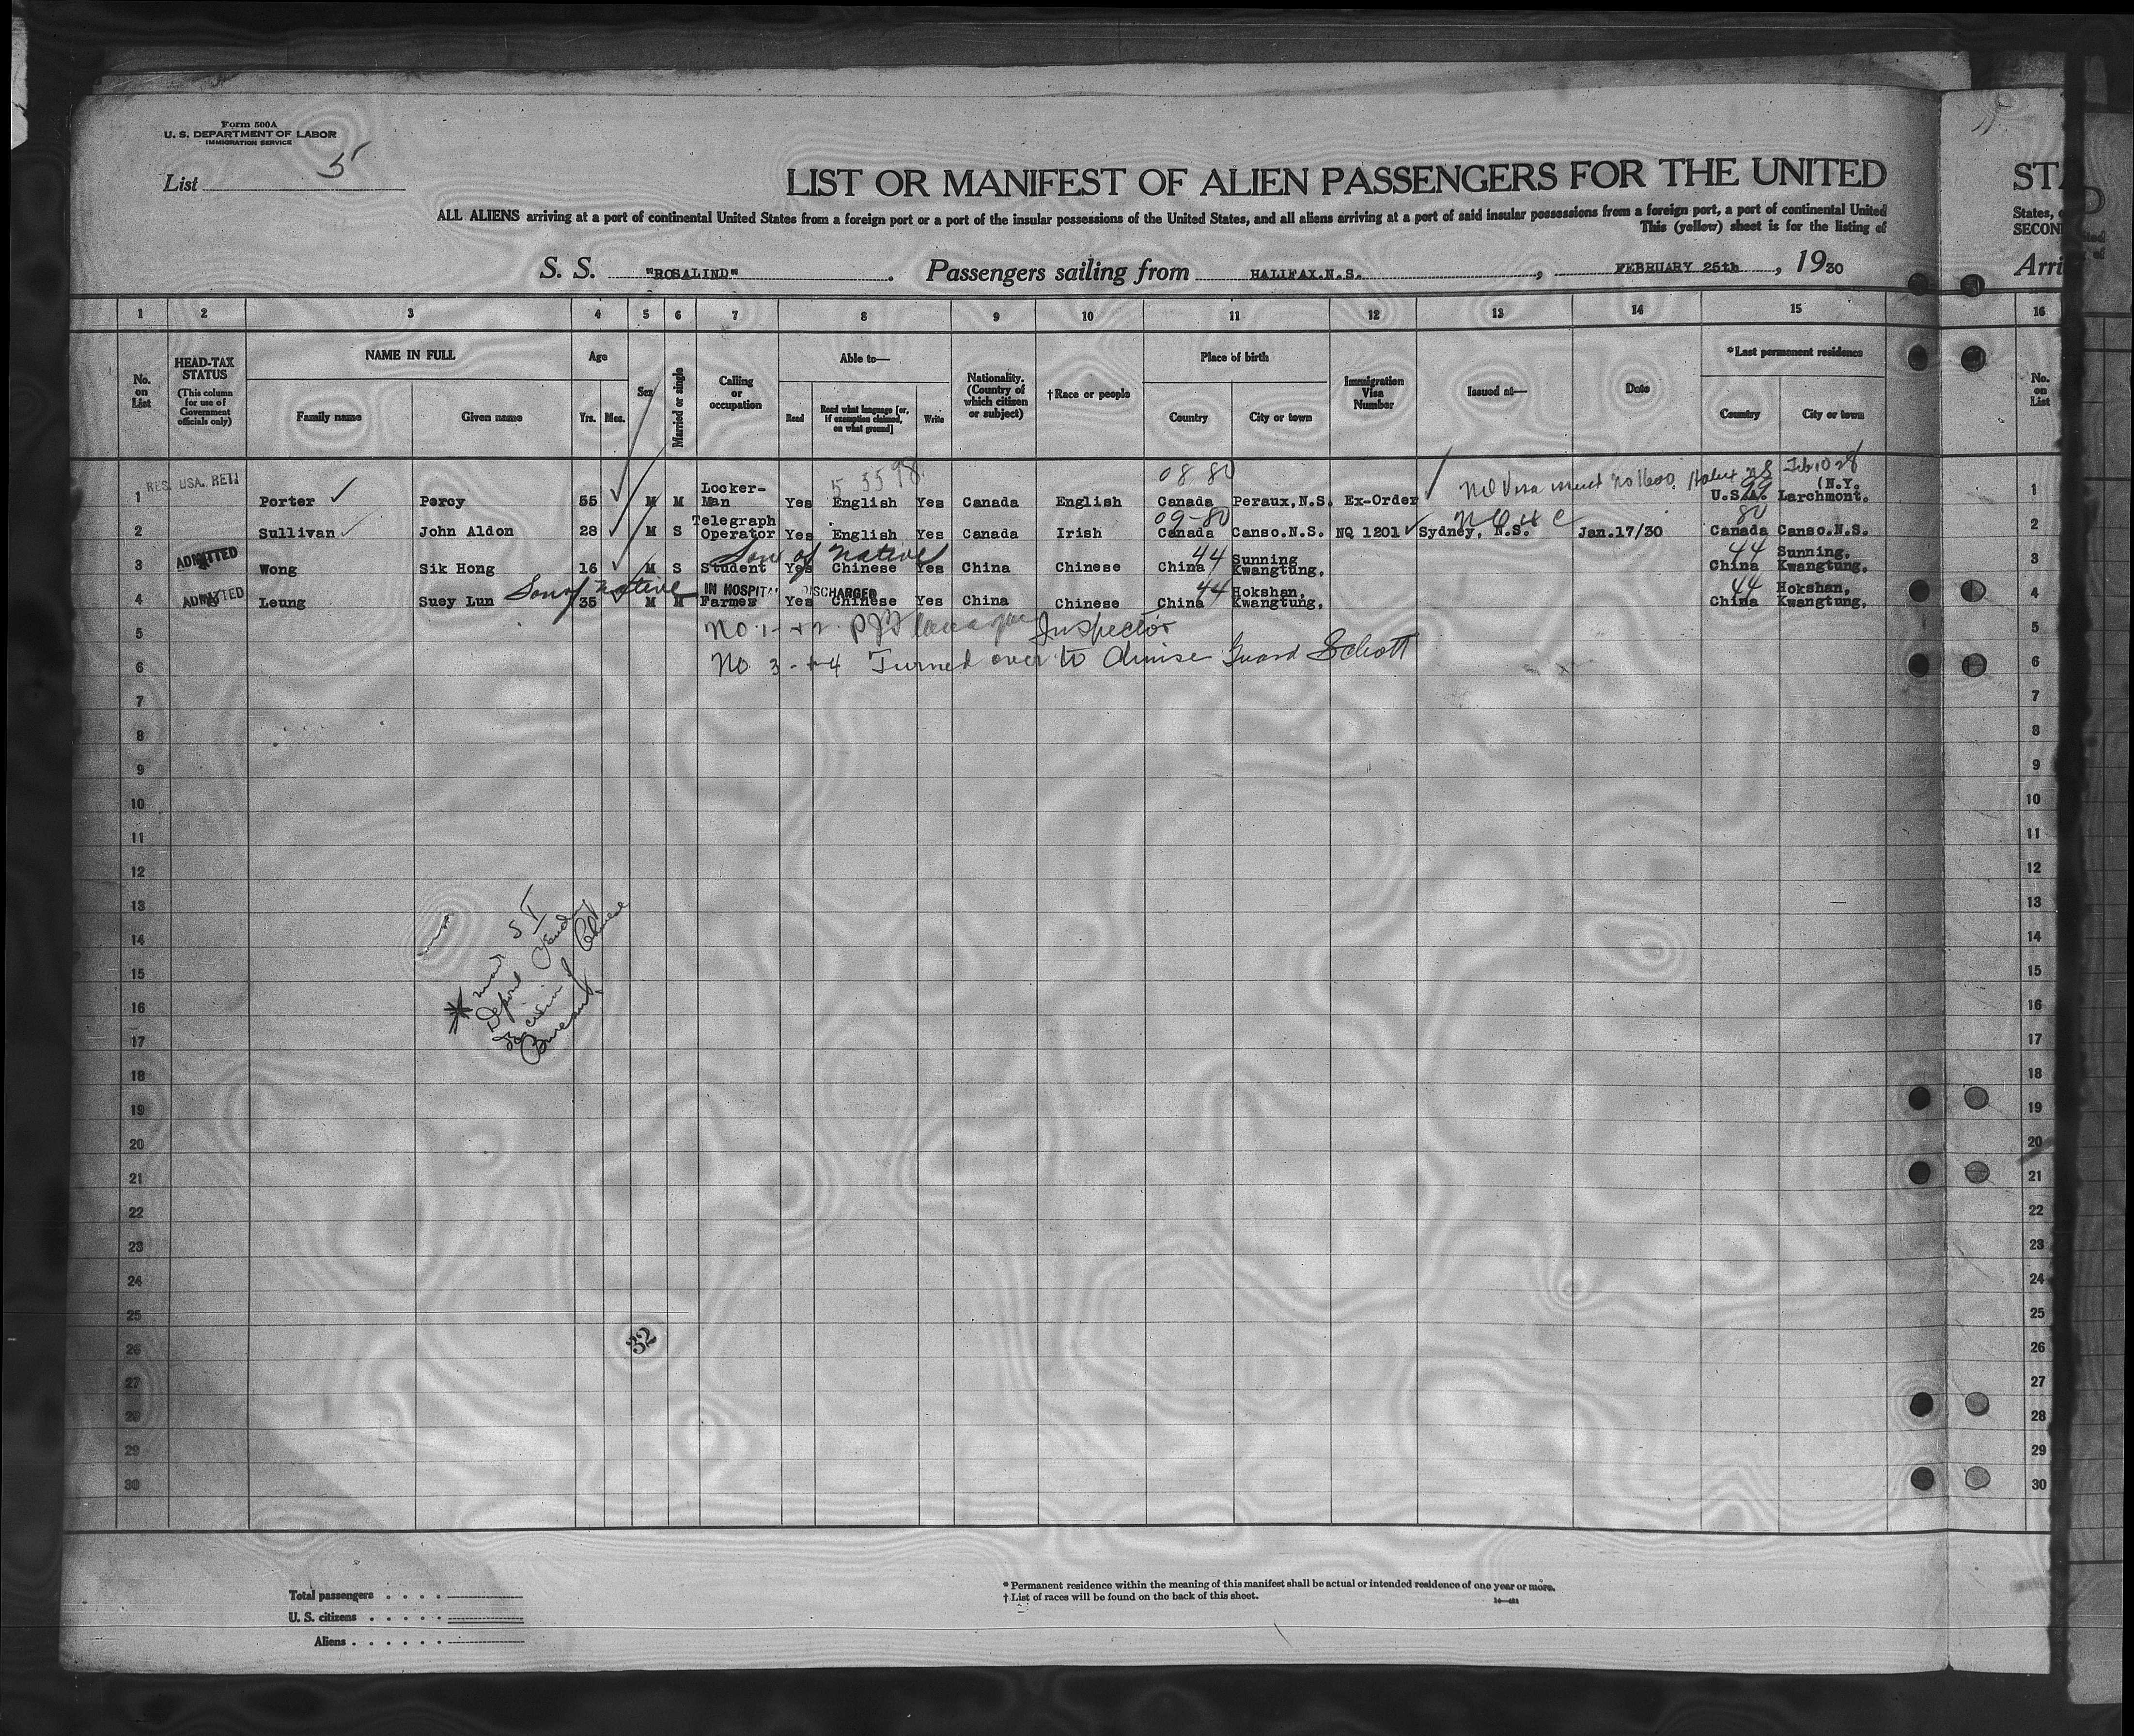 Form 500A
U. S. DEPARTMENT OF LABOR
IMMIGRATION SERVICE
List 5
LIST OR MANIFEST OF ALIEN PASSENGERS FOR THE UNITED
STA
ALL ALIENS arriving at a port of continental United States from a foreign port or a port of the insular possessions of the United States, and all aliens arriving at a port of said insular possessions from a foreign port, a port of continental United
States,
This (yellow) sheet is for the listing of
SECON
S. S. "ROSALIND". Passengers sailing from HALIFAX.N.S., FEBRUARY 25th, 1930
Arri
1 2 3 4 5 6 7 8 9 10 11 12 13 14 15 16
No. on List
HEAD-TAX STATUS
(This column for use of Government officials only)
NAME IN FULL
Family name Given name
Age
Yrs. Mos.
Sex
Married or single
Calling or occupation
Able to—
Read
Read what language [or, if exemption claimed, on what ground]
Write
Nationality. (Country of which citizen or subject)
†Race or people
Place of birth
Country City or town
Immigration Visa Number
Issued at—
Date
*Last permanent residence
Country City or town
No. on List
RES. USA. RETI
5 5598 08 80 No Visa issued No 1600 Halifax NS Feb 10 28
1 Porter Percy 55 M M Locker-Man Yes English Yes Canada English Canada Peraux,N.S. Ex-Order U.S.A. Larchmont. (N.Y. 1
09-80 80
2 Sullivan John Aldon 28 M S Telegraph Operator Yes English Yes Canada Irish Canada Canso.N.S. NQ 1201 Sydney, N.S. Jan.17/30 Canada Canso.N.S. 2
ADMITTED
Son of native
3 Wong Sik Hong 16 M S Student Yes Chinese Yes China Chinese China 44 Sunning Kwangtung. China 44 Sunning. Kwangtung. 3
ADMITTED
Son of native
IN HOSPITAL DISCHARGED
4 Leung Suey Lun 35 M M Farmer Yes Chinese Yes China Chinese China 44 Hokshan, Kwangtung. China 44 Hokshan, Kwangtung. 4
5 No 1-+2 Inspector 5
6 No 3-+4 Turned over to Chinese Guard Schott 6
7 7
8 8
9 9
10 10
11 11
12 12
13 13
14 14
15 15
16 16
17 17
18 18
19 19
20 20
21 21
22 22
23 23
24 24
25 25
26 26
27 27
28 28
29 29
30 30
S I
pending
decision of Chinese
Bureau.
32
Total passengers
U. S. citizens
Aliens
* Permanent residence within the meaning of this manifest shall be actual or intended residence of one year or more.
† List of races will be found on the back of this sheet.